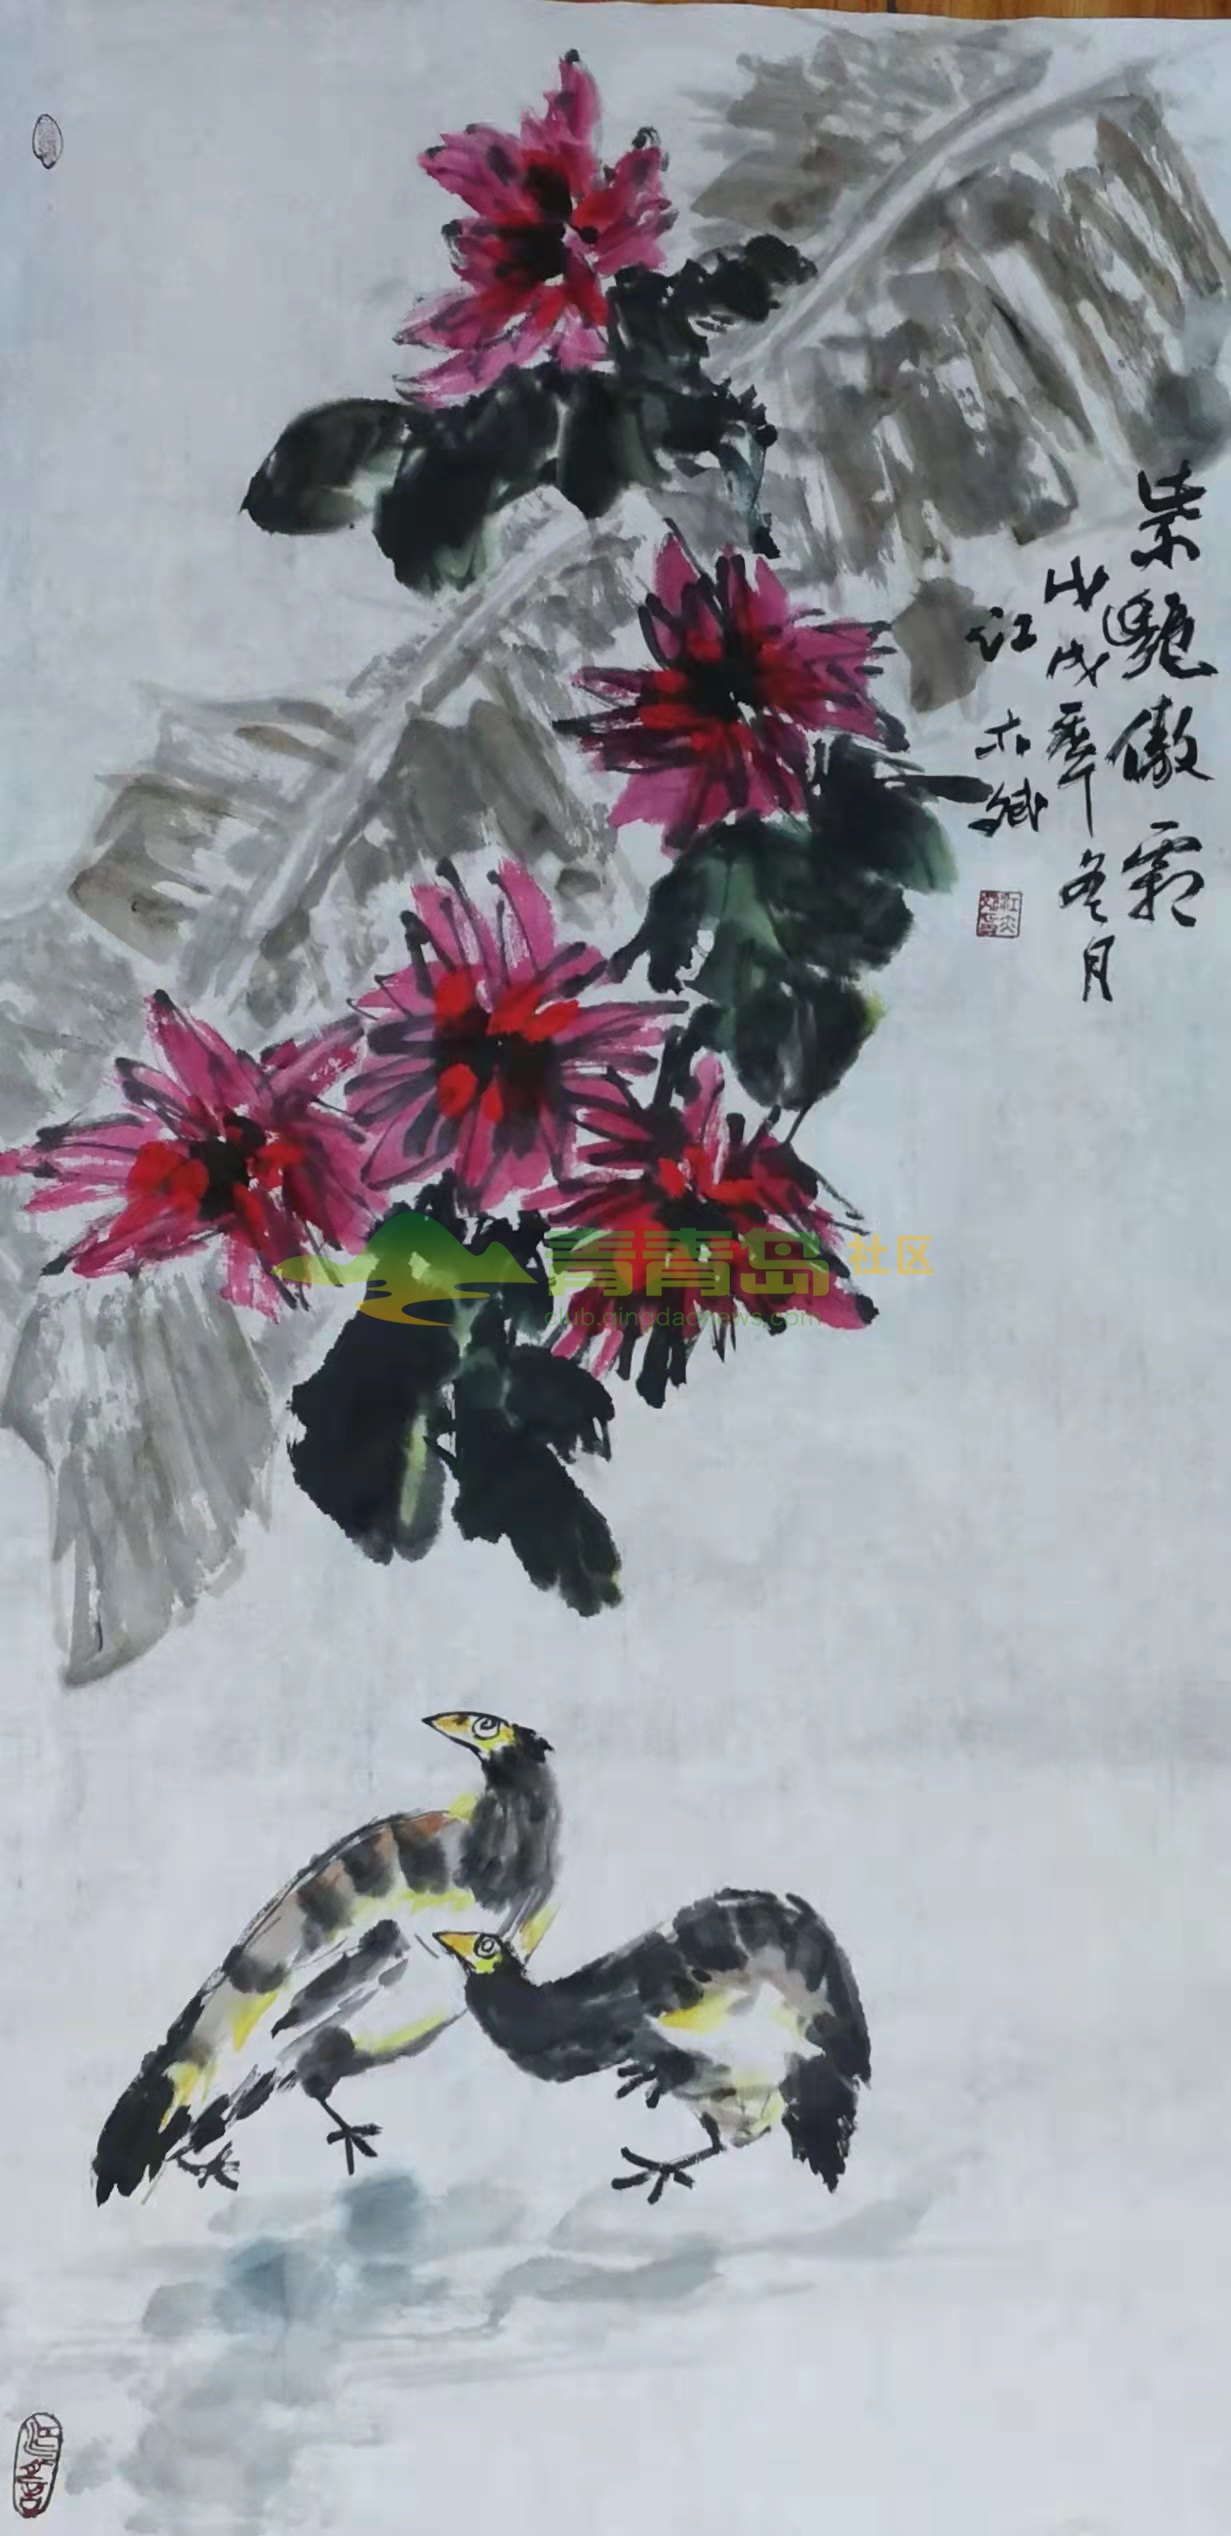 紫艷傲霜
戊戌季冬月
江
青青岛社区
club.qingdaonews.com